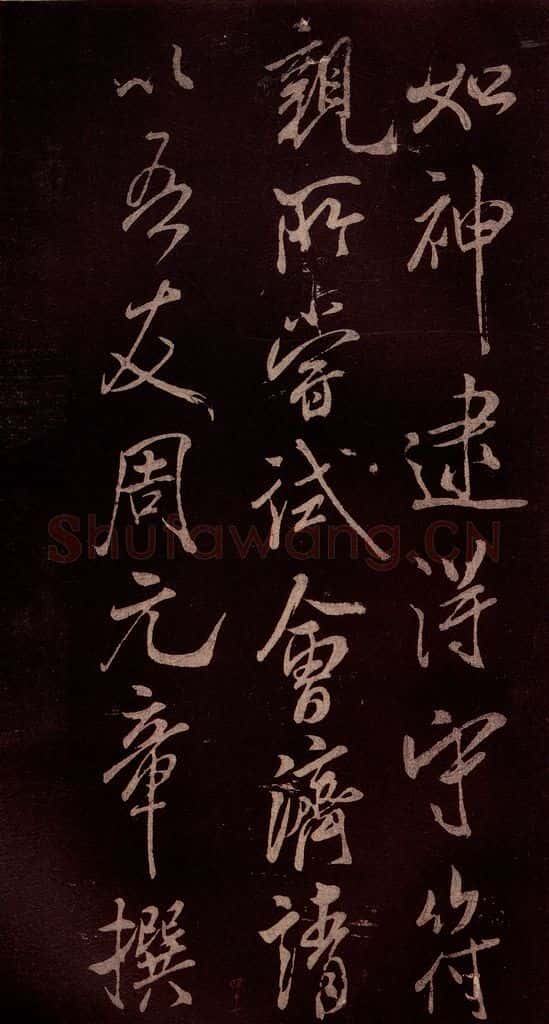 如神逮得守符
親所嘗試會濟請
以吾友周元章撰
Shufawang.CN